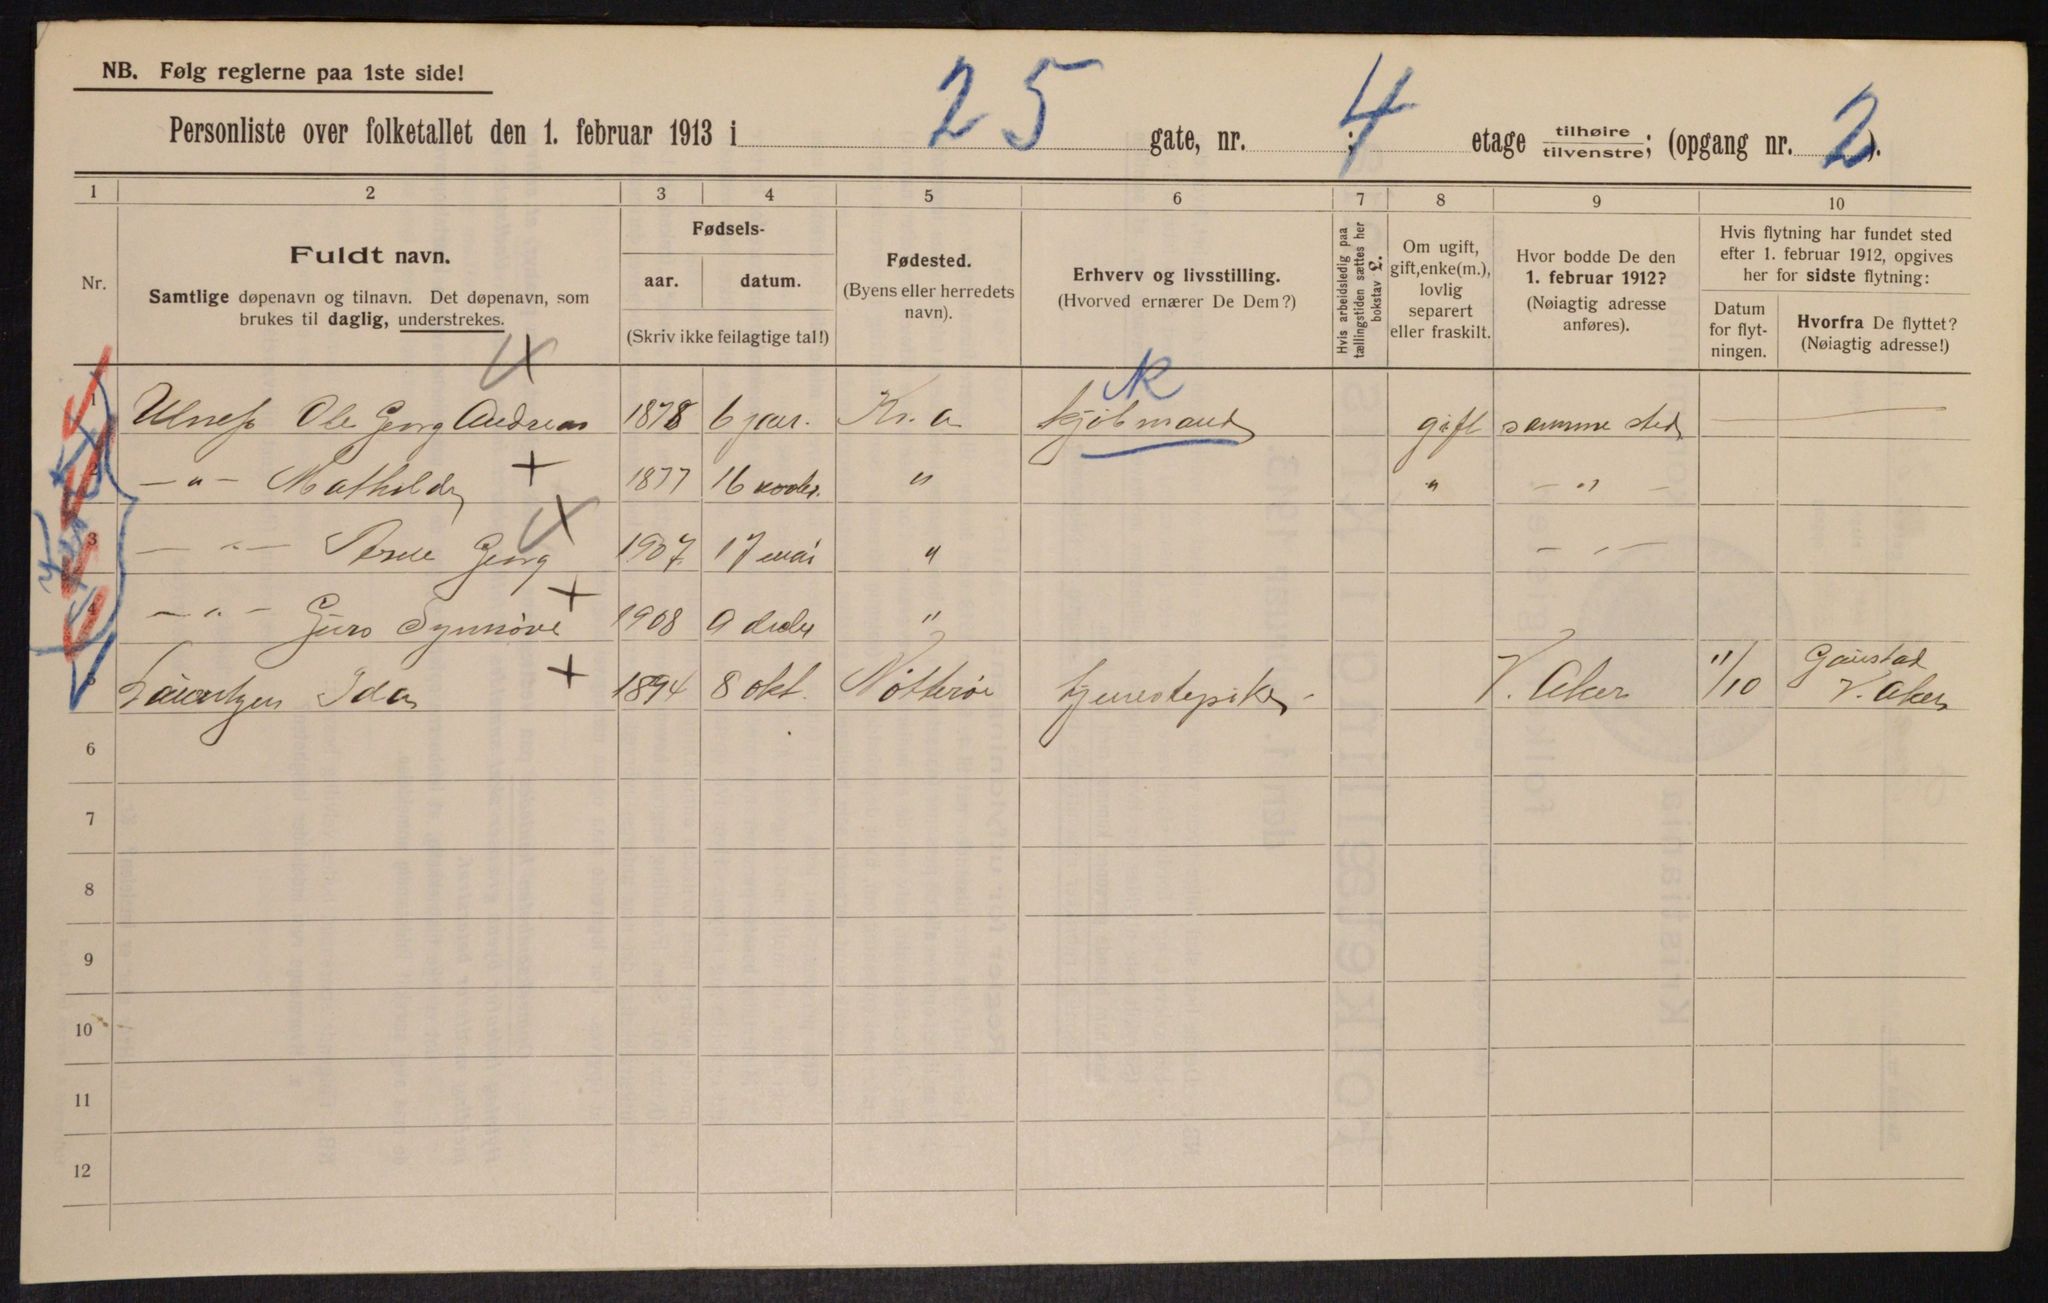 NB. Følg reglerne paa 1ste side!
Personliste over folketallet den 1. februar 1913 i 25 gate, nr. ; 4 etage tilhøire / tilvenstre; (opgang nr. 2).
1 2 3 4 5 6 7 8 9 10
Nr.
Fuldt navn.
Samtlige døpenavn og tilnavn. Det døpenavn, som
brukes til daglig, understrekes.
Fødsels-
aar. datum.
(Skriv ikke feilagtige tal!)
Fødested.
(Byens eller herredets
navn).
Erhverv og livsstilling.
(Hvorved ernærer De Dem?)
Hvis arbeidsledig paa
tællingstiden sættes her
bokstav L.
Om ugift,
gift, enke(m.),
lovlig
separert
eller fraskilt.
Hvor bodde De den
1. februar 1912?
(Nøiagtig adresse
anføres).
Hvis flytning har fundet sted
efter 1. februar 1912, opgives
her for sidste flytning:
Datum
for flyt-
ningen.
Hvorfra De flyttet?
(Nøiagtig adresse!)
K
1 Ole Georg Andreas 1878 6 jan. Kr.a kjøbmand gift samme sted —
2 — " — Mathilde 1877 16 " " — " —
3 — " — Georg 1907 17 mai " — " —
4 — " — Guro Synnøve 1908 9 decbr "
5 Laurentzen Ida 1894 8 okt. Nøtterøe tjenestepike V. Aker 11/10 Gaustad
V. Aker
6
7
8
9
10
11
12